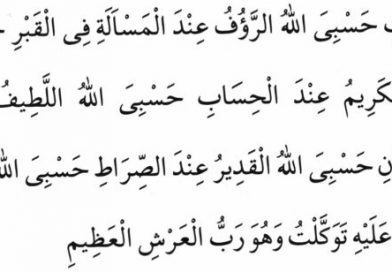 حَسْبِىَ اللهُ الرَّؤُفُ عِنْدَ الْمَسْاَلَةِ فِى الْقَبْرِ
عِنْدَ الْحِسَابِ حَسْبِىَ اللهُ اللَّطِيفُ
حَسْبِىَ اللهُ الْقَدِيرُ عِنْدَ الصِّرَاطِ حَسْبِىَ اللهُ
عَلَيْهِ تَوَكَّلْتُ وَهُوَ رَبُّ الْعَرْشِ الْعَظِيمِ